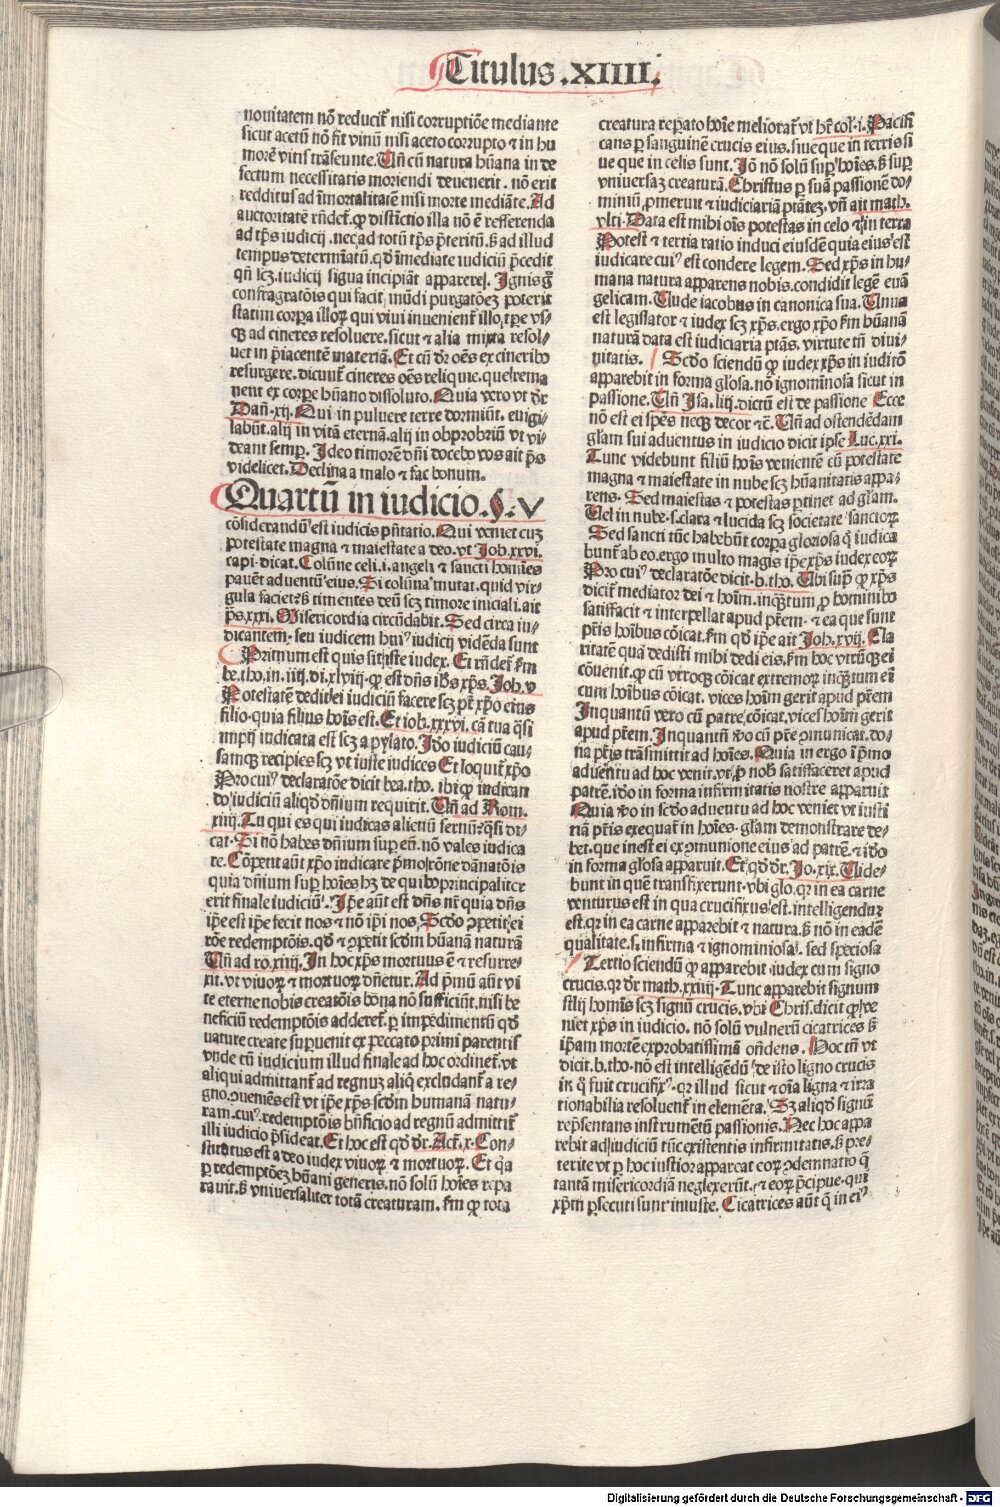 Titulus .XIIII.
nouitatem nõ reducit᷒ nisi corruptiõe mediante
sicut acetũ nõ fit vinũ nisi aceto corrupto ⁊ in hu
morẽ vitis trãseunte. Uñ cũ natura hũana in de
fectum necessitatis moriendi deuenerit. nõ erit
redditus ad ĩmortalitatẽ nisi morte mediãte. Ad
auctoritatẽ rñdet᷒. ꝙ distĩctio illa nõ ẽ refferenda
ad tp̃s iudicij. nec ad totũ tp̃s p̃teritũ. ß ad illud
tempus determĩatũ. qd̃ ĩmediate iudiciũ p̃cedit
qñ scꝫ. iudicij signa incipiãt apparere. Ignis g̃
conflagratõis qui facit mũdi purgatõeꝫ poterit
statim corpa illoꝝ qui viui inuenient᷒ illo tp̃e vs⸗
qꝫ ad cineres resoluere. sicut ⁊ alia mixta resol⸗
uet in p̃iacentẽ materiã. Et cũ dr̃ oẽs ex cinerib9
resurgere. dicunt᷒ cineres oẽs reliquie. que rema
nent ex corpe hũano dissoluto. Quia vero vt dr̃
Dañ. xij. Qui in puluere terre dormiũt. euigi⸗
labũt. alij in vitã eternã. alij in obprobriũ vt vi⸗
deant semp. Ideo timorẽ dñi docebo vos ait p̃s
videlicet. Declina a malo ⁊ fac bonum.
Quartũ in iudicio. §. V
cõsiderandũ est iudicis pñtatio. Qui veniet cuꝫ
potestate magna ⁊ maiestate a deo. vt Job. xxvi.
capi. dicat. Colũne celi. i. angeli ⁊ sancti homĩes
pauẽt aduentũ eius. Si colũna mutat. quid vir⸗
gula faciet? ß timentes deũ scꝫ timore iniciali. ait
p̃s. xxxi. Misericordia circũdabit. Sed circa iu⸗
dicantem. seu iudicem hui9 iudicij vidẽda sunt
Primum est quis sit iste iudex. Et rñdet᷒ fm
be. tho. in. iiij. di. xlviij. ꝙ est dñs ih̃s xp̃s. Joh. v
Potestatẽ dedit ei iudiciũ facere scꝫ pr̃ xp̃o eius
filio. quia filius hoĩs est. Et iob. xxxvi. cã tua q̃si
impij iudicata est scꝫ a pylato. Iõo iudiciũ cau⸗
samqꝫ recipies scꝫ vt iuste iudices Et loquit᷒ xp̃o
Pro cui9 declaratõe dicit bea. tho. ibi ꝙ indican
do iudiciũ aliqd̃ dñium requirit. Uñ ad Rom.
xiiij. Tu qui es qui iudicas alienũ seruũ? q̃si di⸗
cat. Si nõ habes dñium sup eũ. nõ vales iudica
re. Cõpetit aũt xp̃o iudicare p̃mo rõne dãnatõis
quia dñium sup hoĩes hꝫ de quib9 principaliter
erit finale iudiciũ. Ip̃e aũt est dñs nr̃ quia dñs
ip̃e est ip̃e fecit nos ⁊ nõ ip̃i nos. Scõo ꝯpetit ei
rõe redemptõis. qd̃ ⁊ ꝯpetit scdm hũanã naturã
Uñ ad ro. xiiij. In hoc xp̃s mortuus ẽ ⁊ resurre⸗
xit. vt viuoꝝ ⁊ mortuoꝝ dñetur. Ad p̃mũ aũt vi
te eterne nobis creatõis bona nõ sufficiũt. nisi be
neficiũ redemptõis adderet᷒. p impedimentũ qd̃
nature create supuenit ex peccato primi parentis
vnde cũ iudicium illud finale ad hoc ordinet᷒. vt
aliqui admittant᷒ ad regnuꝫ aliq̃ excludant᷒ a re⸗
gno. ꝯueniẽs est vt ip̃e xp̃s scdm humanã natu⸗
ram. cui9 redemptõis bñficio ad regnũ admittit᷒
illi iudicio p̃sideat. Et hoc est qd̃ dr̃. Act. x. Con⸗
stitutus est a deo iudex viuoꝝ ⁊ mortuoꝝ. Et q̃a
p redemptõeꝫ hũani generis. nõ solũ hoĩes repa
rauit. ß vniuersaliter totã creaturam. fm ꝙ tota
creatura repato hoĩe meliorat᷒ vt hr̃ col. i. Pacifi
cans p sanguinẽ crucis eius. siue que in terris si
ue que in celis sunt. Iõ nõ solũ sup hoĩes. ß sup
vniuersaꝫ creaturã. Christus p suã passionẽ do⸗
miniũ ꝓmeruit ⁊ iudiciariã ptãteꝫ. vñ ait math.
vlti. Data est mihi oĩs potestas in celo ⁊ in terra
Potest ⁊ tertia ratio induci eiusdẽ quia eius est
iudicare cui9 est condere legem. Sed xp̃s in hu⸗
mana natura apparens nobis. condidit legẽ euã
gelicam. Unde iacobus in canonica sua. Unus
est legislator ⁊ iudex scꝫ xp̃s. ergo xp̃o fm hũanã
naturã data est iudiciaria ptãs. virtute tñ diui⸗
nitatis. Scõo sciendũ ꝙ iudex xp̃s in iuditõ
apparebit in forma glõsa. nõ ignominõsa sicut in
passione. Uñ Isa. liij. dictũ est de passione Ecce
nõ est ei sp̃es neqꝫ decor ⁊c̃. Uñ ad ostendẽdam
glam sui aduentus in iudicio dicit ip̃se Luc. xxi.
Tunc videbunt filiũ hoĩs venientẽ cũ potestate
magna ⁊ maiestate in nube scꝫ hũanitatis appa⸗
rens. Sed maiestas ⁊ potestas ptinet ad glam.
Uel in nube. s. clara ⁊ lucida scꝫ societate sanctoꝝ
Sed sancti tũc habebũt corpa gloriosa q̃ iudica
bunt᷒ ab eo. ergo multo magis ip̃e xp̃s iudex eoꝝ
Pro cui9 declaratõe dicit. b. tho. Ubi sup̃ ꝙ xp̃s
dicit᷒ mediator dei ⁊ hoĩm. inqꝫtum ꝓ hominib9
satisfacit ⁊ interpellat apud pr̃em. ⁊ ea que sunt
pr̃is hoĩbus cõicat. fm qd̃ ip̃e ait Joh. xvij. Cla
ritatẽ quã dedisti mihi dedi eis. fm hoc vtrũqꝫ ei
cõuenit. ꝙ cũ vtroqꝫ cõicat extremoꝝ inqꝫtum eĩ
cum hoĩbus cõicat. vices hoĩm gerit apud pr̃em
Inquantũ vero cũ patre cõicat. vices hoĩm gerit
apud pr̃em. Inquantũ ṽo cũ pr̃e ꝯmunicat. do⸗
na pr̃is trãsmittit ad hoĩes. Quia in ergo ĩ p̃mo
aduẽtu ad hoc venit. vt ꝓ nob̃ satisfaceret apud
patrẽ. iõo in forma infirmitatis nostre apparuit
Quia ṽo in scõo aduentu ad hoc veniet vt iusti
tiã pr̃is exequat᷒ in hoĩes. glam demonstrare de⸗
bet. que inest ei ex ꝯmunione eius ad patrẽ. ⁊ iõo
in forma glõsa apparuit. Et qd̃ dr̃. Jo. xix. Uide⸗
bunt in quẽ transfixerunt. vbi glo. qꝛ in ea carne
venturus est in qua crucifixus est. intelligenduꝫ
est. qꝛ in ea carne apparebit ⁊ natura. ß nõ in eadẽ
qualitate. s. infirma ⁊ ignominiosa. sed speciosa
Tertio sciendũ ꝙ apparebit iudex cum signo
crucis. qꝛ dr̃ math. xxiiij. Tunc apparebit signum
filij homĩs scꝫ signũ crucis. vbi Chris. dicit ꝙ ve
niet xp̃s in iudicio. nõ solũ vulnerũ cicatrices ß
ip̃am mortẽ exprobatissimã oñdens. Hoc tñ vt
dicit. b. tho. nõ est intelligẽdũ de isto ligno crucis
in q̃ fuit crucifix9. qꝛ illud sicut ⁊ oĩa ligna ⁊ irra
tionabilia resoluent᷒ in elemẽta. Sꝫ aliqd̃ signũ
rep̃sentans instrumẽtũ passionis. Nec hoc appa
rebit ad iudiciũ tũc existentis infirmitatis. ß pre⸗
terite vt p hoc iustior appareat eoꝝ ꝯdemnatio q̃
tantã misericordiã neglexerũt. ⁊ eoꝝ p̃cipue. qui
xp̃m psecuti sunt iniuste. Cicatrices aũt q̃ in ei9
Digitalisierung gefördert durch die Deutsche Forschungsgemeinschaft - DFG